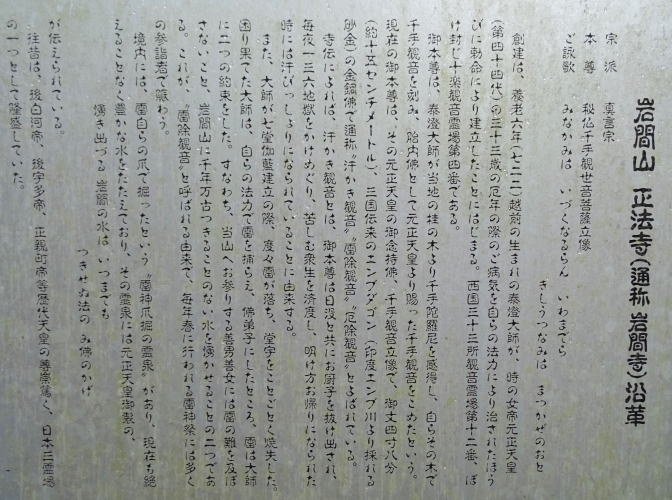 岩間山 正法寺(通称 岩間寺)沿革
宗派 真言宗
本尊 秘仏千手観世音菩薩立像
ご詠歌 みなかみは いづくなるらん いわまでら
きしうつなみは まつかぜのおと
創建は、養老六年(七二二)越前の生まれの泰澄大師が、時の女帝元正天皇
(第四十四代)の三十三歳の厄年の際のご病気を自らの法力により治されたほう
びに勅命により建立したことにはじまる。西国三十三所観音霊場第十二番、ぼ
け封じ十楽観音霊場第四番である。
御本尊は、泰澄大師が当地の桂の木より千手陀羅尼を感得し、自らその木で
千手観音を刻み、胎内佛として元正天皇より賜った千手観音をこめたという。
現在の御本尊は、その元正天皇の御念持佛、千手観音立像で、御丈四寸八分
(約十五センチメートル)、三国伝来のエンブダゴン(印度エンブ川より採れる
砂金)の金銅佛で通称〝汗かき観音〟〝雷除観音〟〝厄除観音〟とよばれている。
寺伝によれば、汗かき観音とは、御本尊は日没と共にお厨子を抜け出され、
毎夜一三六地獄をかけめぐり、苦しむ衆生を済度し、明け方お帰りになられた
時には汗びっしょりになられていることに由来する。
また、大師が七堂伽藍建立の際、度々雷が落ち、堂宇をことごとく焼失した。
困り果てた大師は、自らの法力で雷を捕らえ、佛弟子にしたところ、雷は大師
に二つの約束をした。すなわち、当山へお参りする善男善女には雷の難を及ぼ
さないこと、岩間山に千年万古つきることのない水を湧かせることの二つであ
る。これが、〝雷除観音〟と呼ばれる由来で、毎年春に行われる雷神祭には多く
の参詣者で賑わう。
境内には、雷自らの爪で掘ったという〝雷神爪掘の霊泉〟があり、現在も絶
えることなく豊かな水をたたえており、その霊泉には元正天皇御製の、
湧き出づる 岩間の水は いつまでも
つきせぬ法の み佛のかげ
が伝えられている。
往昔は、後白河帝、後宇多帝、正親町帝等歴代天皇の尊崇篤く、日本三霊場
の一つとして隆盛していた。